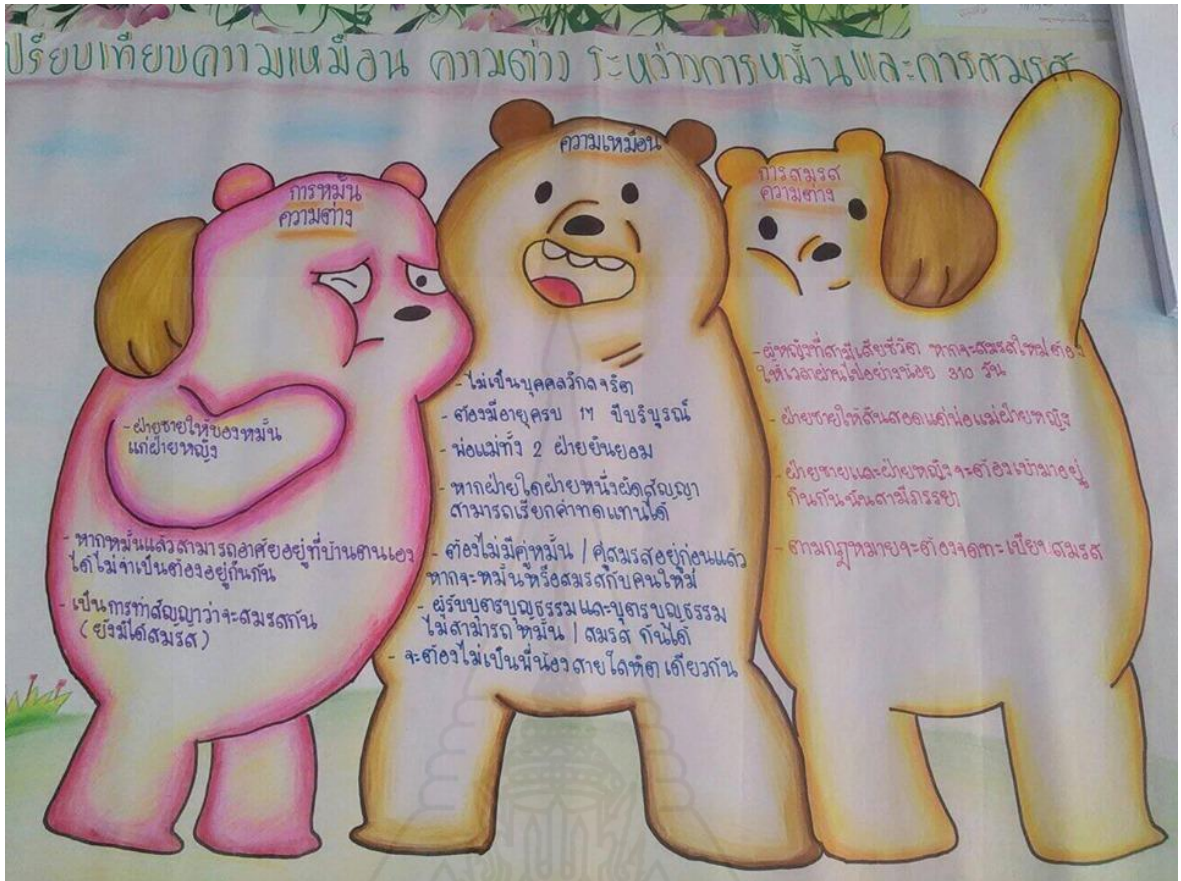 ปรียบเทียบความเหมือน ความต่าง ระหว่างการหมั้นและการสมรส
การหมั้น
ความต่าง
- ฝ่ายชายให้ของหมั้น
แก่ฝ่ายหญิง
- หากหมั้นแล้วสามารถอาศัยอยู่ที่บ้านตนเอง
ได้ไม่จำเป็นต้องอยู่กินกัน
- เป็นการทำสัญญาว่าจะสมรสกัน
(ยังมิได้สมรส)
ความเหมือน
- ไม่เป็นบุคคลวิกลจริต
- ต้องมีอายุครบ 17 ปีบริบูรณ์
- พ่อแม่ทั้ง 2 ฝ่ายยินยอม
- หากฝ่ายใดฝ่ายหนึ่งผิดสัญญา
สามารถเรียกค่าทดแทนได้
- ต้องไม่มีคู่หมั้น / คู่สมรสอยู่ก่อนแล้ว
หากจะหมั้นหรือสมรสกับคนใหม่
- ผู้รับบุตรบุญธรรมและบุตรบุญธรรม
ไม่สามารถ หมั้น / สมรส กันได้
- จะต้องไม่เป็นพี่น้องสายโลหิตเดียวกัน
การสมรส
ความต่าง
- ผู้หญิงที่สามีเสียชีวิต หากจะสมรสใหม่ต้อง
ให้เวลาผ่านไปอย่างน้อย 310 วัน
- ฝ่ายชายให้สินสอดแด่พ่อแม่ฝ่ายหญิง
- ฝ่ายชายและฝ่ายหญิงจะต้องเข้ามาอยู่
กินกันฉันสามีภรรยา
- ตามกฎหมายจะต้องจดทะเบียนสมรส